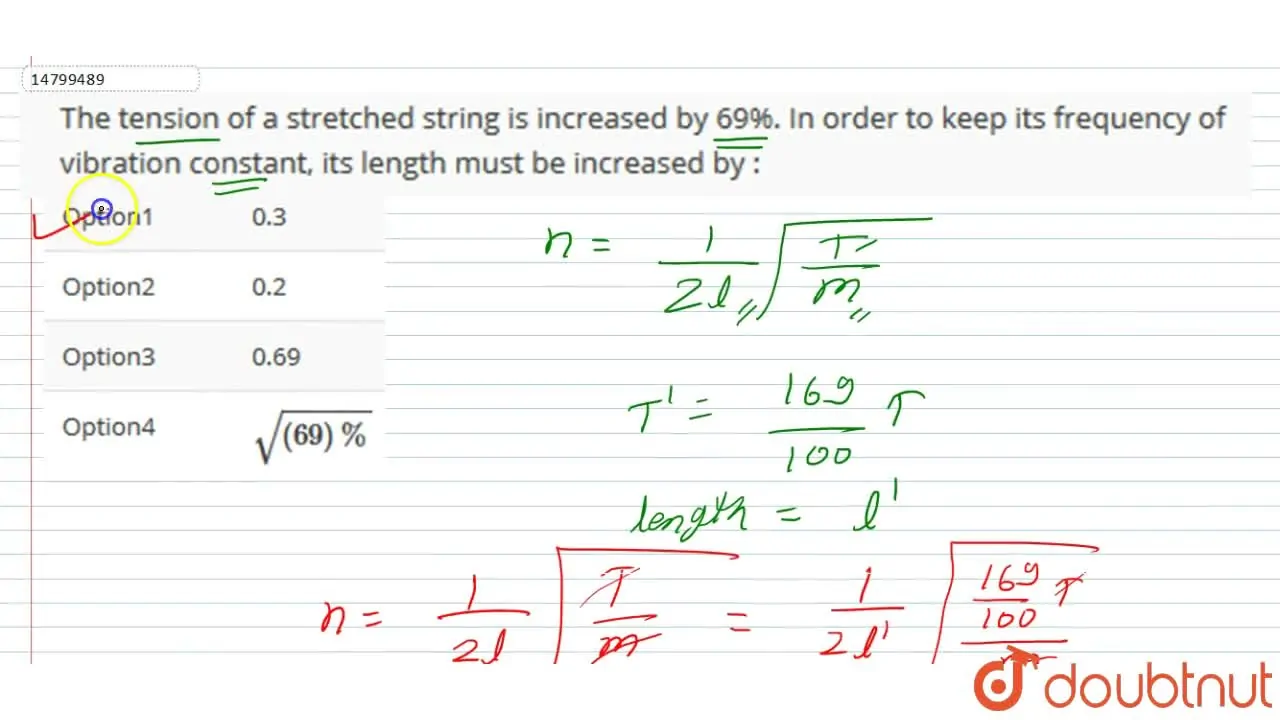 14799489
The tension of a stretched string is increased by 69%. In order to keep its frequency of
vibration constant, its length must be increased by :
Option1 0.3
Option2 0.2
Option3 0.69
Option4 √(69) %
n = 1/2l √T/m
T' = 169/100 T
length = l'
n = 1/2l √T/m = 1/2l' √169/100 T/m
doubtnut